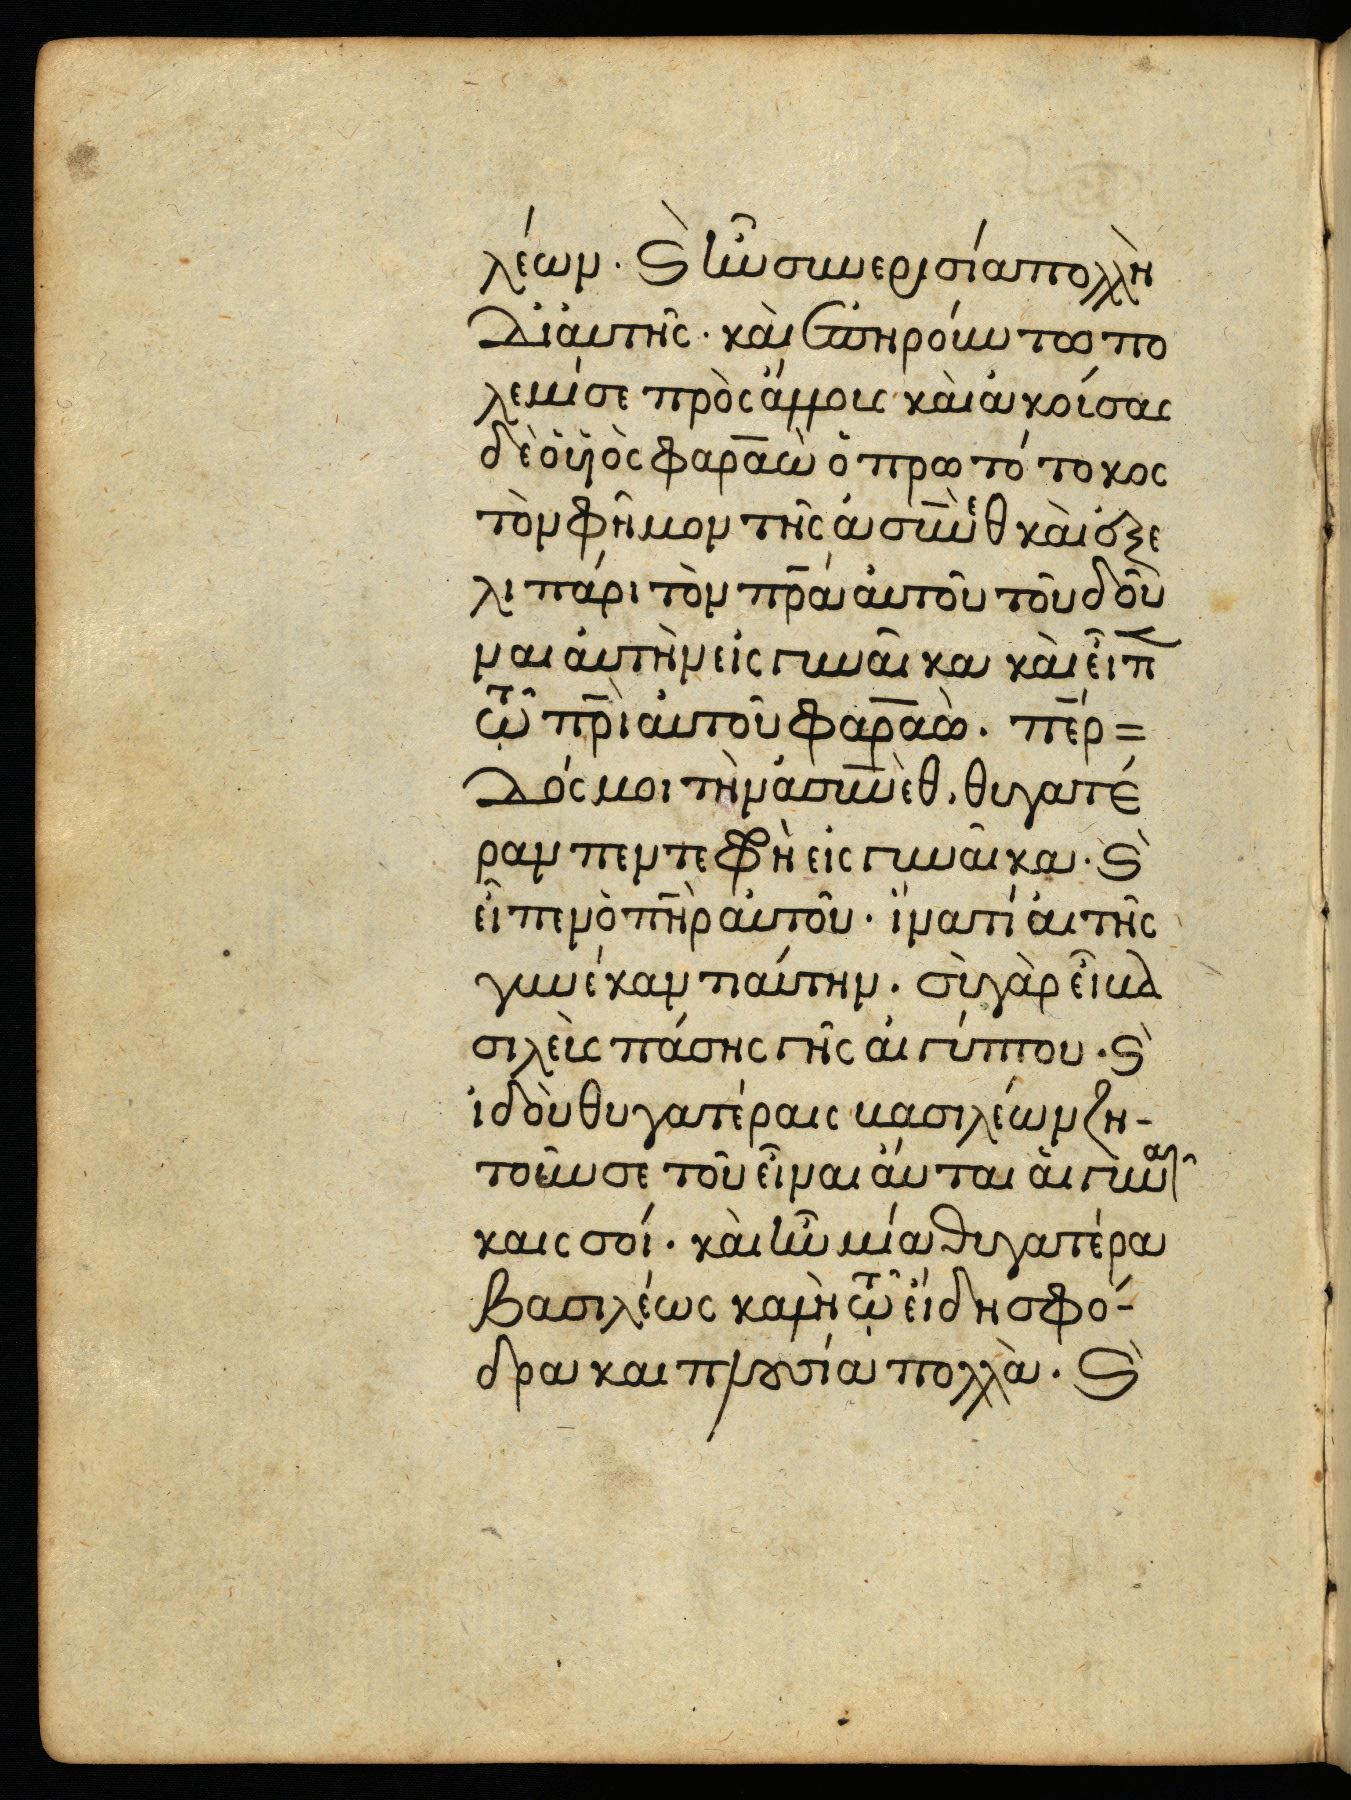 λέων. ϗ̀ ἦν συνερισία πολλὴ
δι' ἀυτῆς. καὶ ἐπηρόυν τω πο
λεμίσε πρὸς ἄλλοις καὶ ἀκόυσας
δὲ ὁ ὑιὸς φαραὼ ὁ πρωτότοκος
τὸν φῆμον τῆς ἀσυνὲθ καὶ ἐξε
λιπάρι τὸν πρ̅α ἀυτοῦ τοῦ δοῦ
ναι ἀυτὴν εἰς γυναῖκα καὶ εἶπ̅
τῶ πρ̅ὶ ἀυτοῦ φαραὼ. πέρ=
δός μοι τὴν ἀσυνὲθ, θυγατέ
ραν πεντεφρὴ εἰς γυναῖκα. ϗ̀
εἶπεν ὁ πη̅ρ ἀυτοῦ. ἵνα τί ἀιτῆς
γυνέκαν ταύτην. σὺ γὰρ εἶ βα
σιλεὺς πάσης γῆς ἀιγύπτου. ϗ̀
ἰδοὺ θυγατέραις βασιλέων ζη-
τοῦν σε τοῦ εἶναι ἀύται ἀι γυναῖ
καις σόι. καὶ ἦν μία θυγατέρα
βασιλέως καλὴ τῶ ἐίδη σφό-
δρα και πλουσία πολλὰ. ϗ̀